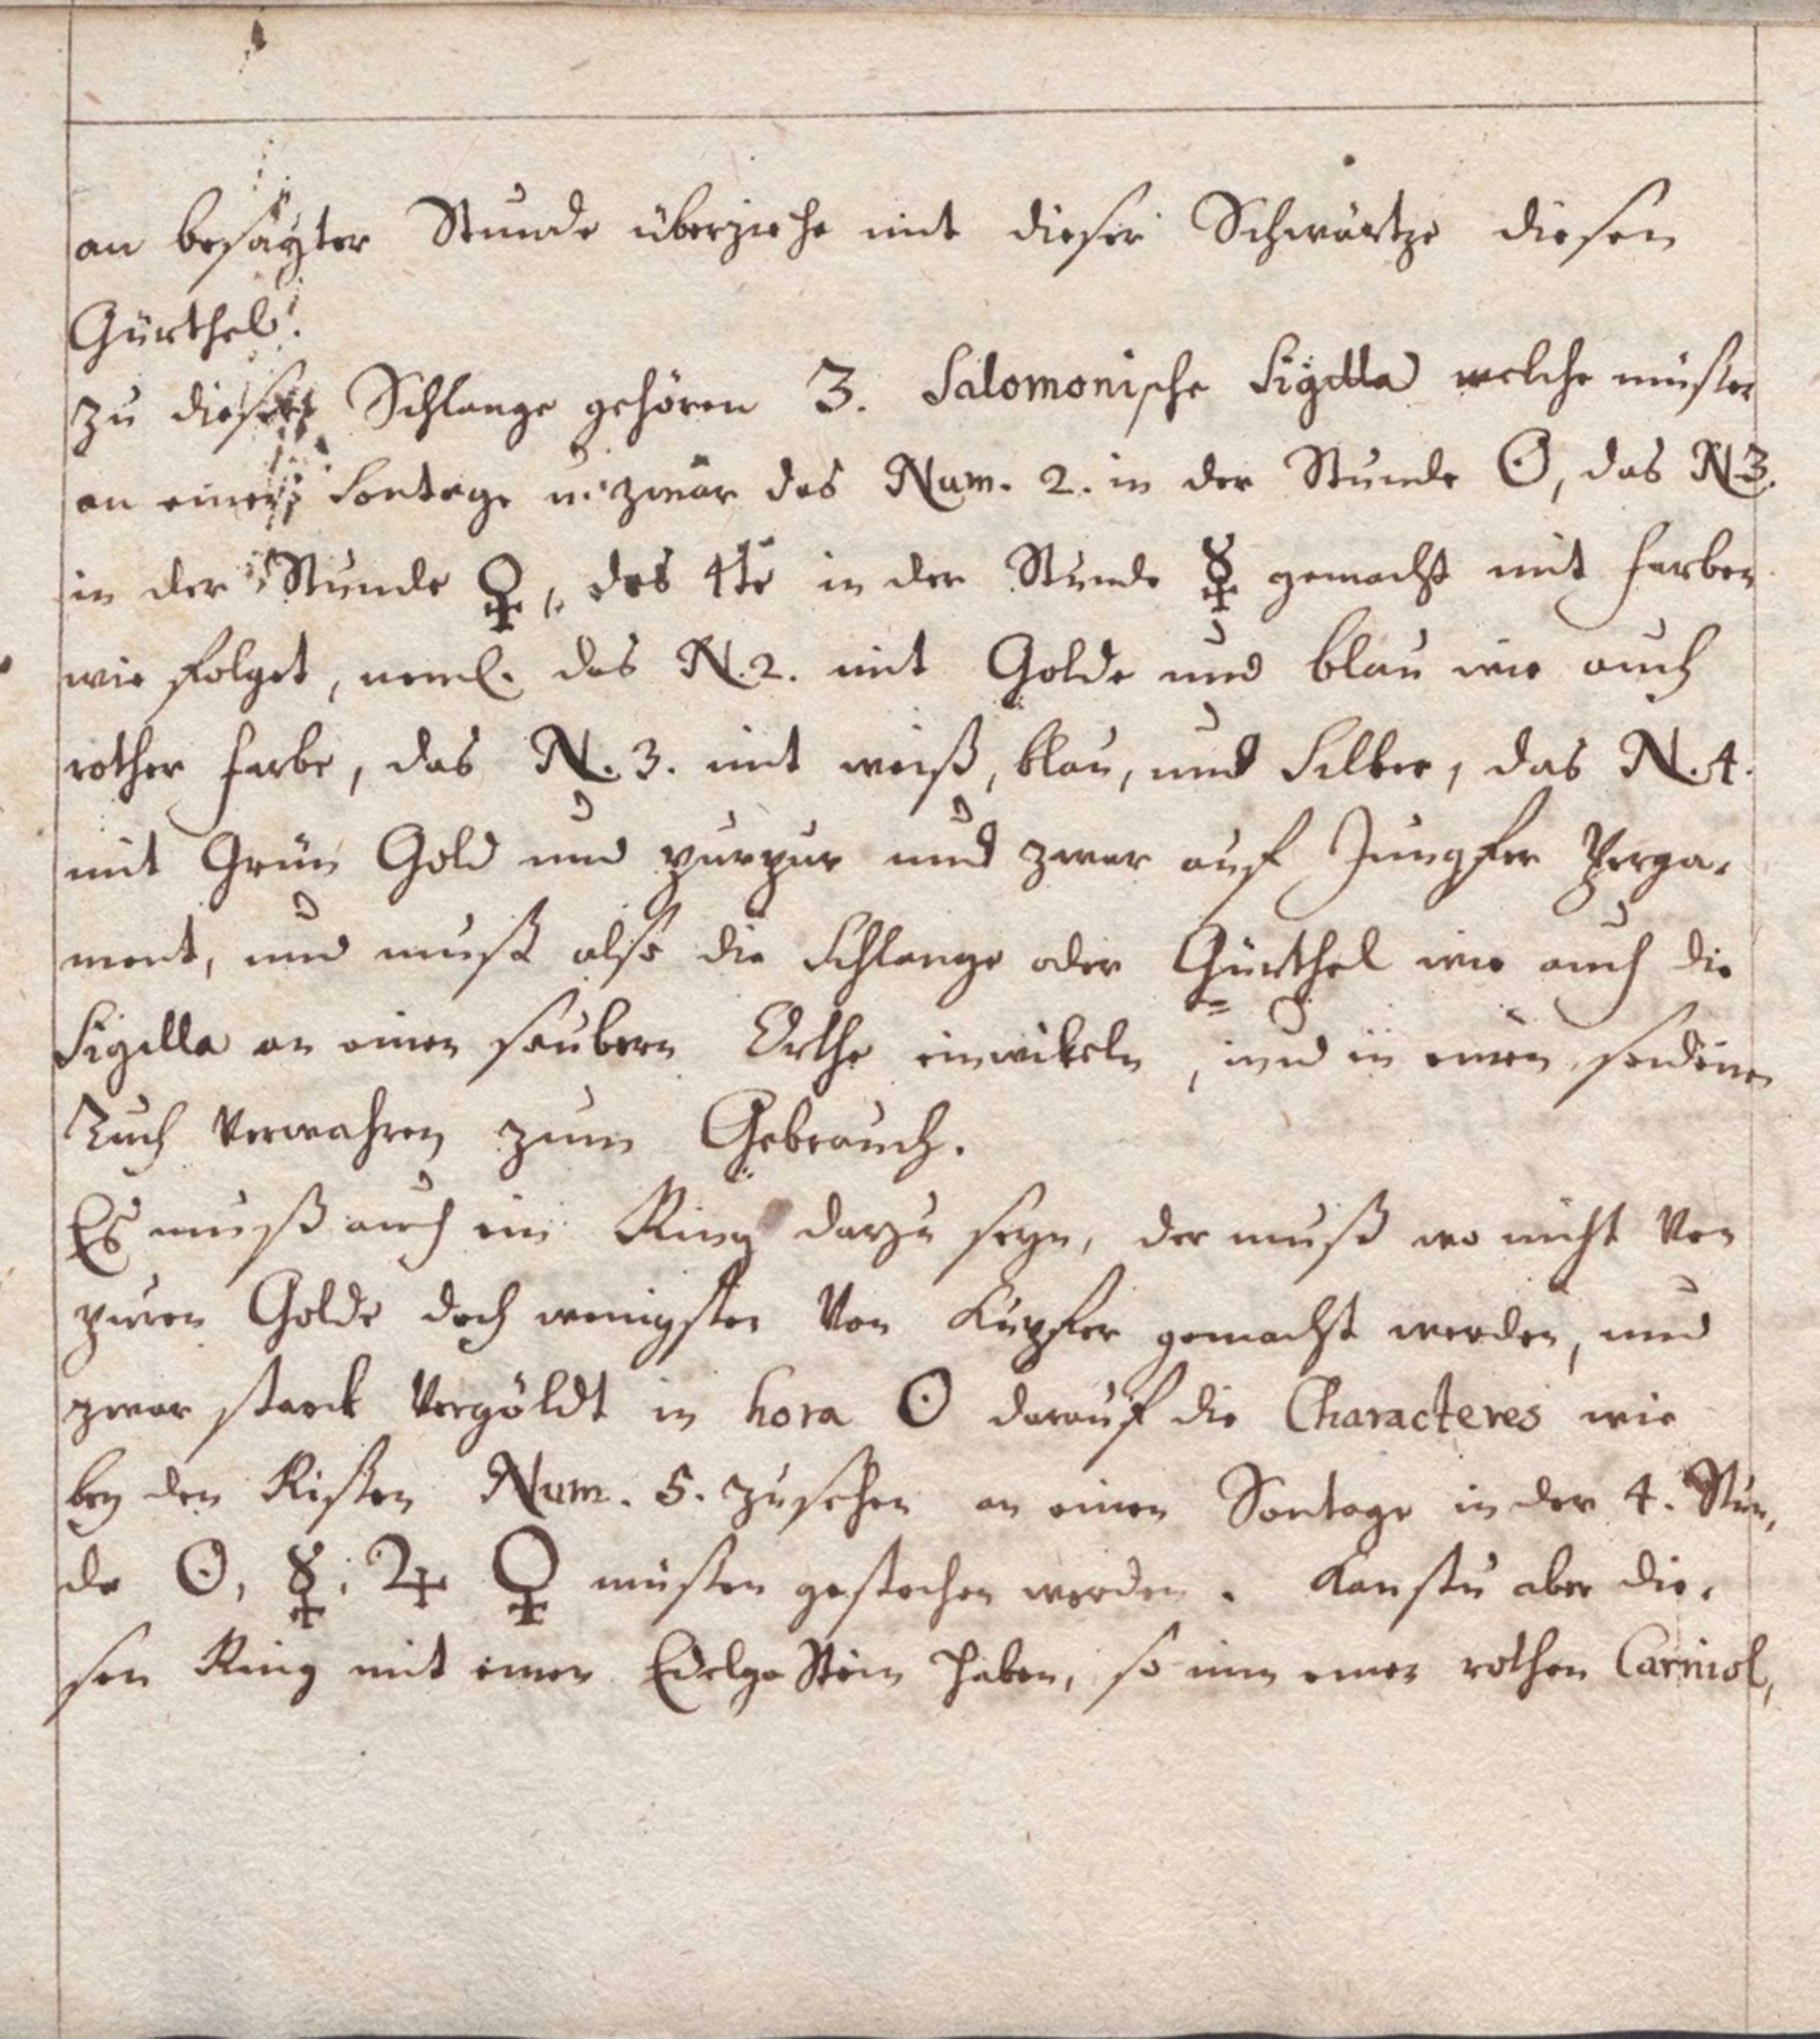 an besagter Stunde überziehe mit dieser Schwärtze diesen
Gürthel.
zu dieser Schlange gehören 3. Salomonische Sigilla welche müssen
an einen Sontage u: zwar das Num. 2. in der Stunde ☉, das N. 3.
in der Stunde ♀, das 4te in der Stunde ☿ gemacht mit farben
wie folget, neml. das N. 2. mit Golde und blau wie auch
rother farbe, das N. 3. mit weiß, blau, und Silber, das N. 4.
mit Grün Gold und purpur und zwar auf Jungfer Perga-
ment, und muß also die Schlange oder Gürthel wie auch die
Sigilla an einen saubern Orthe einwikeln, und in einen seidenen
Tuch verwahren zum Gebrauch.
Es muß auch ein Ring darzu seyn, der muß wo nicht von
puren Golde doch wenigsten von Kupfer gemacht werden, und
zwar starck vergöldt in hora ☉ darauf die Characteres wie
bey den Rissen Num. 5. zusehen an einen Sontage in der 4. Stun-
de ☉, ☿, ♃ ♀ müssen gestochen werden. Kanstu aber die-
sen Ring mit einen Edelgestein haben, so nim einen rothen Carniol,